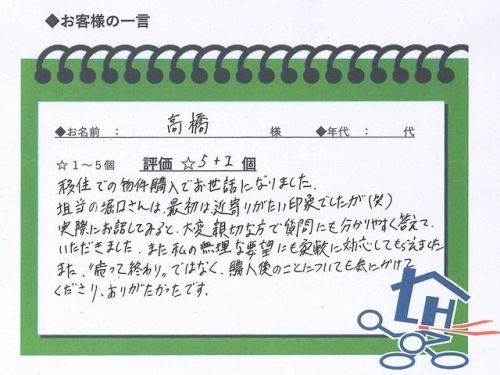 ◆お客様の一言
◆お名前 ： 高橋 様 ◆年代 ： 代
☆１～５個 評価 ☆5+1 個
移住での物件購入でお世話になりました。
担当の堀口さんは、最初は近寄りがたい印象でしたが(笑)
実際にお話してみると、大変親切な方で質問にも分かりやすく答えて
いただきました。また私の無理な要望にも柔軟に対応してもらえました
また、"売って終わり"ではなく、購入後のことについても気にかけて
くださり、ありがたかったです。
LH